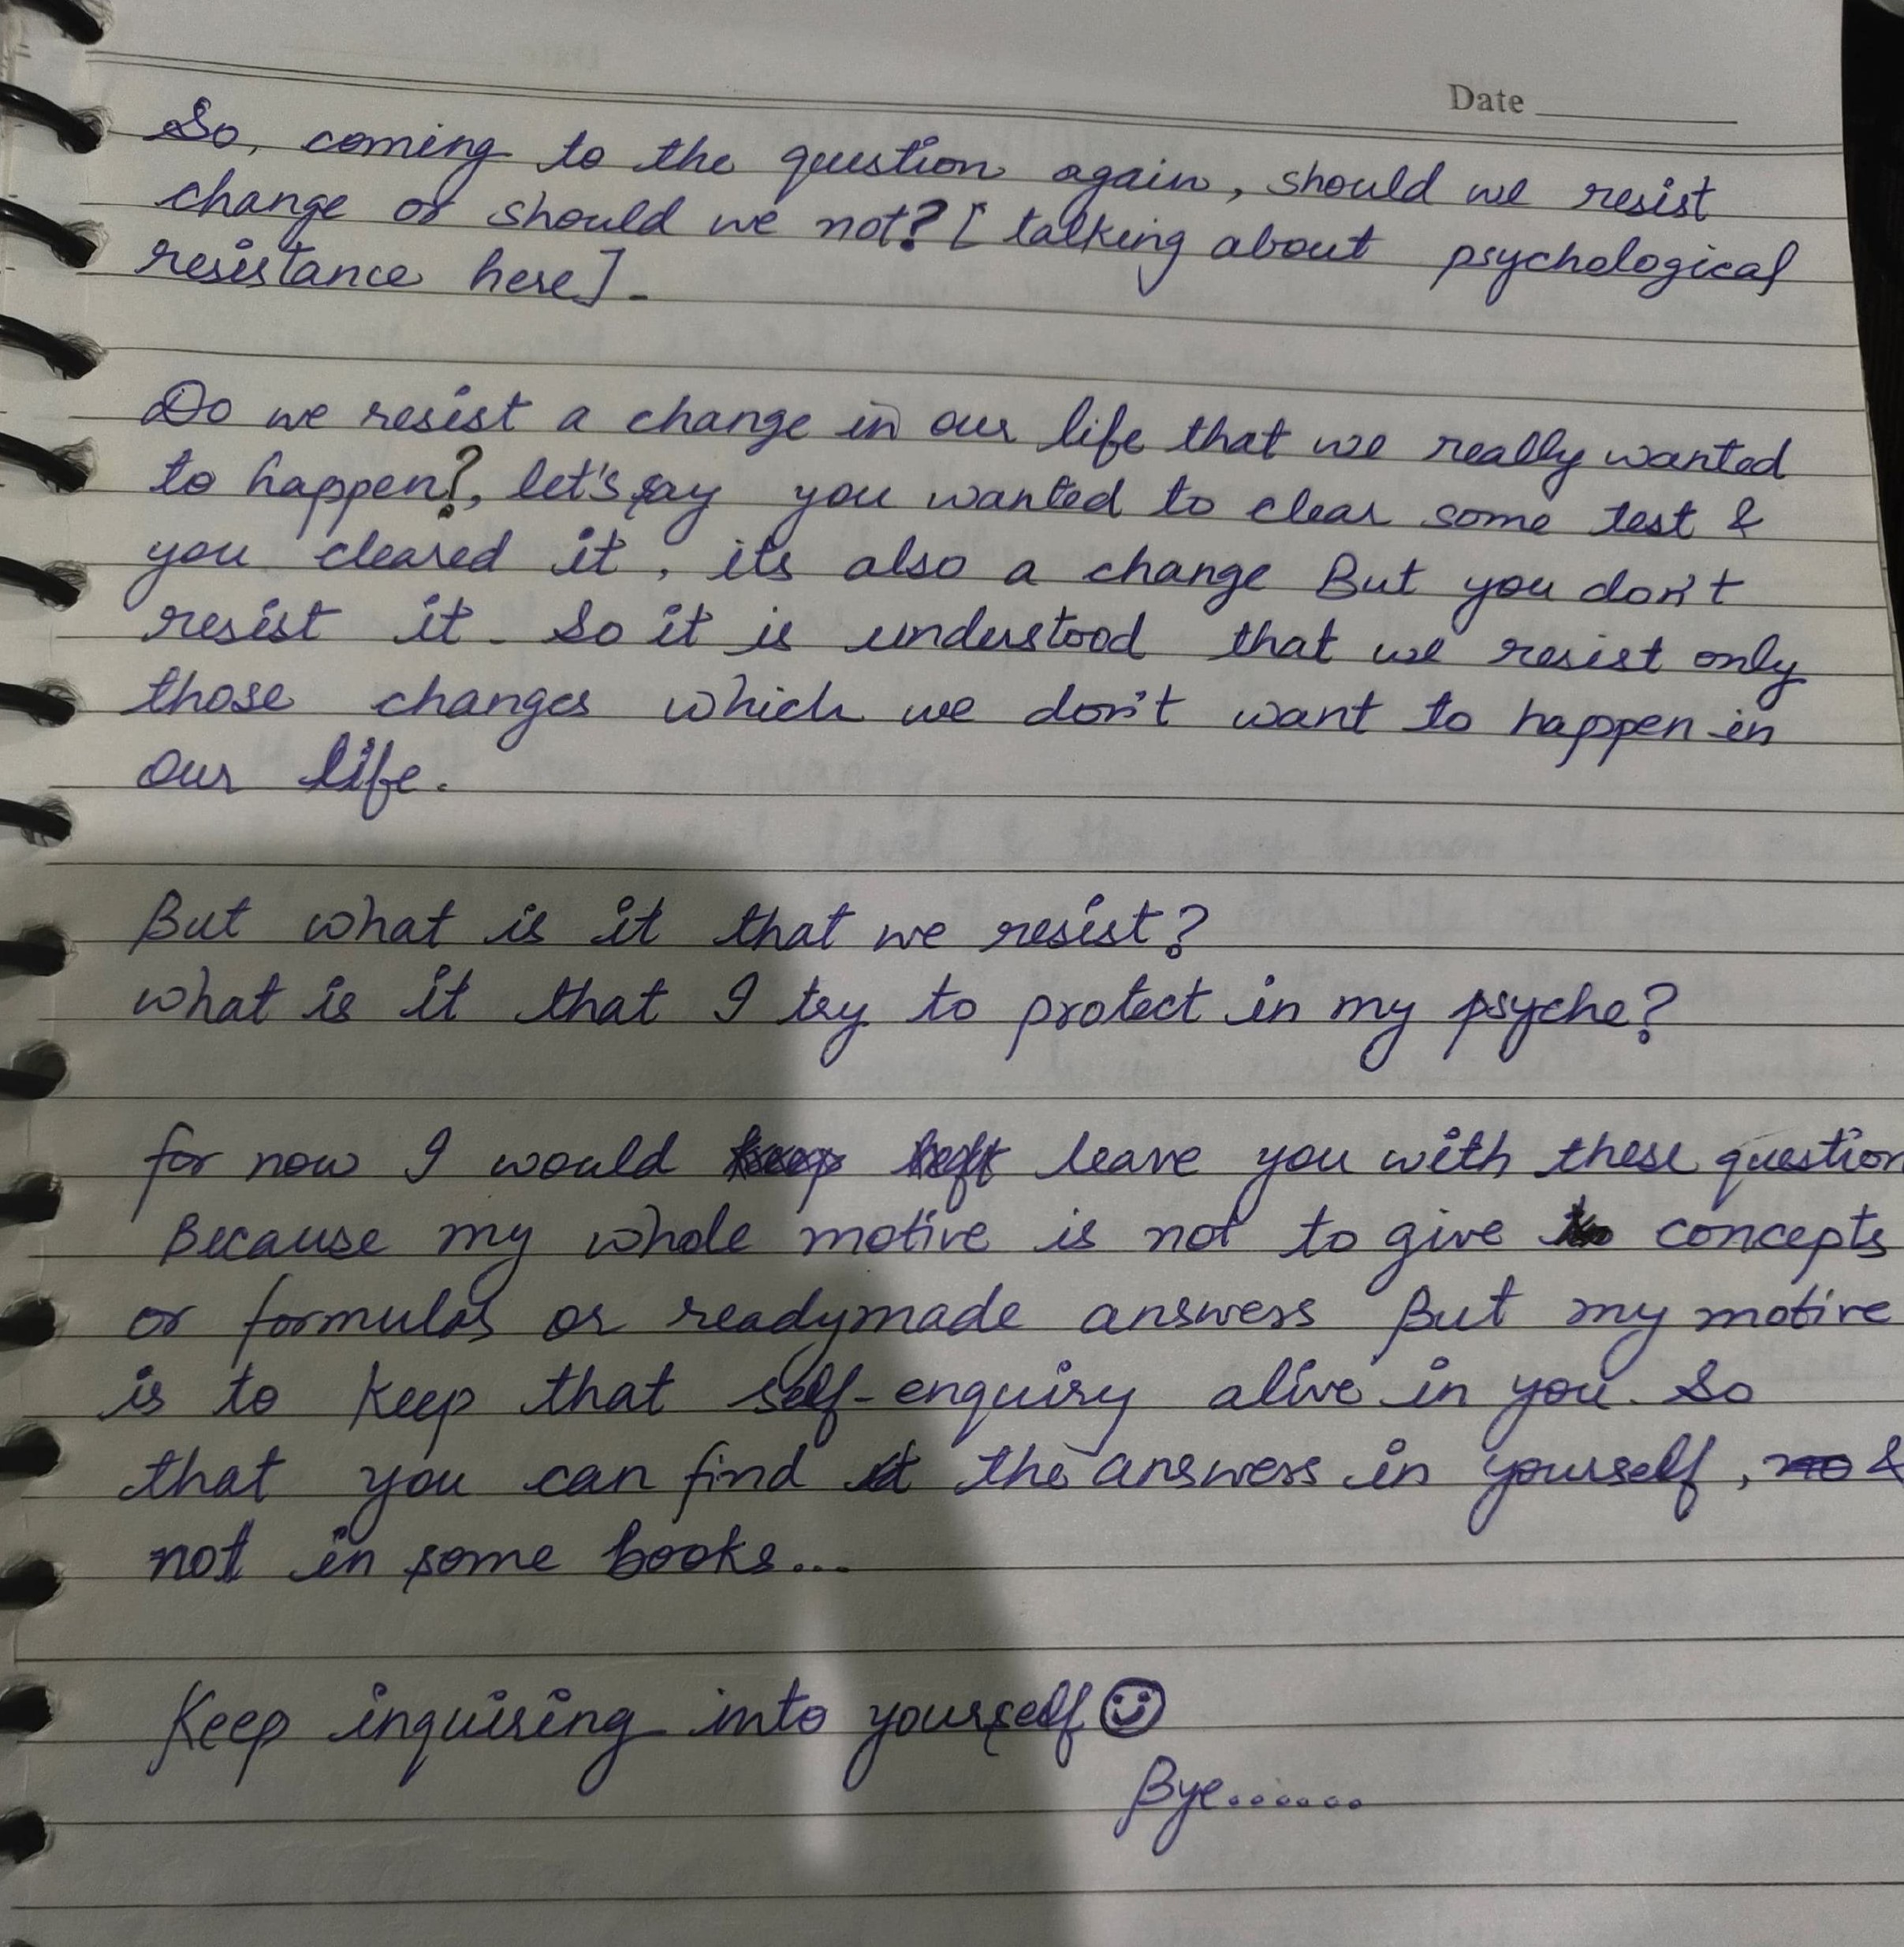 Date
So, coming to the question again, should we resist
change or should we not? [talking about psychological
resistance here].
Do we resist a change in our life that we really wanted
to happen?, let's say you wanted to clear some test &
you cleared it, its also a change But you don't
resist it. So it is understood that we resist only
those changes which we don't want to happen in
our life.
But what is it that we resist?
what is it that I try to protect in my psyche?
for now I would keep left leave you with these question
Because my whole motive is not to give to concepts
or formulas or readymade answers But my motive
is to keep that self-enquiry alive in you. So
that you can find it the answers in yourself, no &
not in some books...
Keep inquiring into yourself ☺
Bye.......